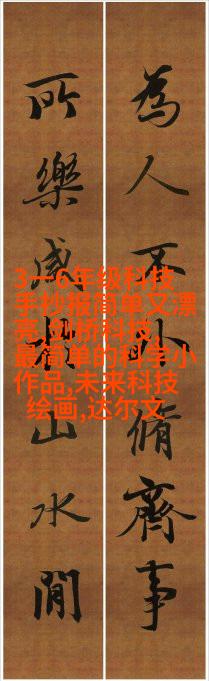 為人不外脩齊事
所樂咸山水間
3一6年级科技
手抄报简单又漂
亮,剑桥科技,
最简单的科学小
作品,未来科技
绘画,达尔文